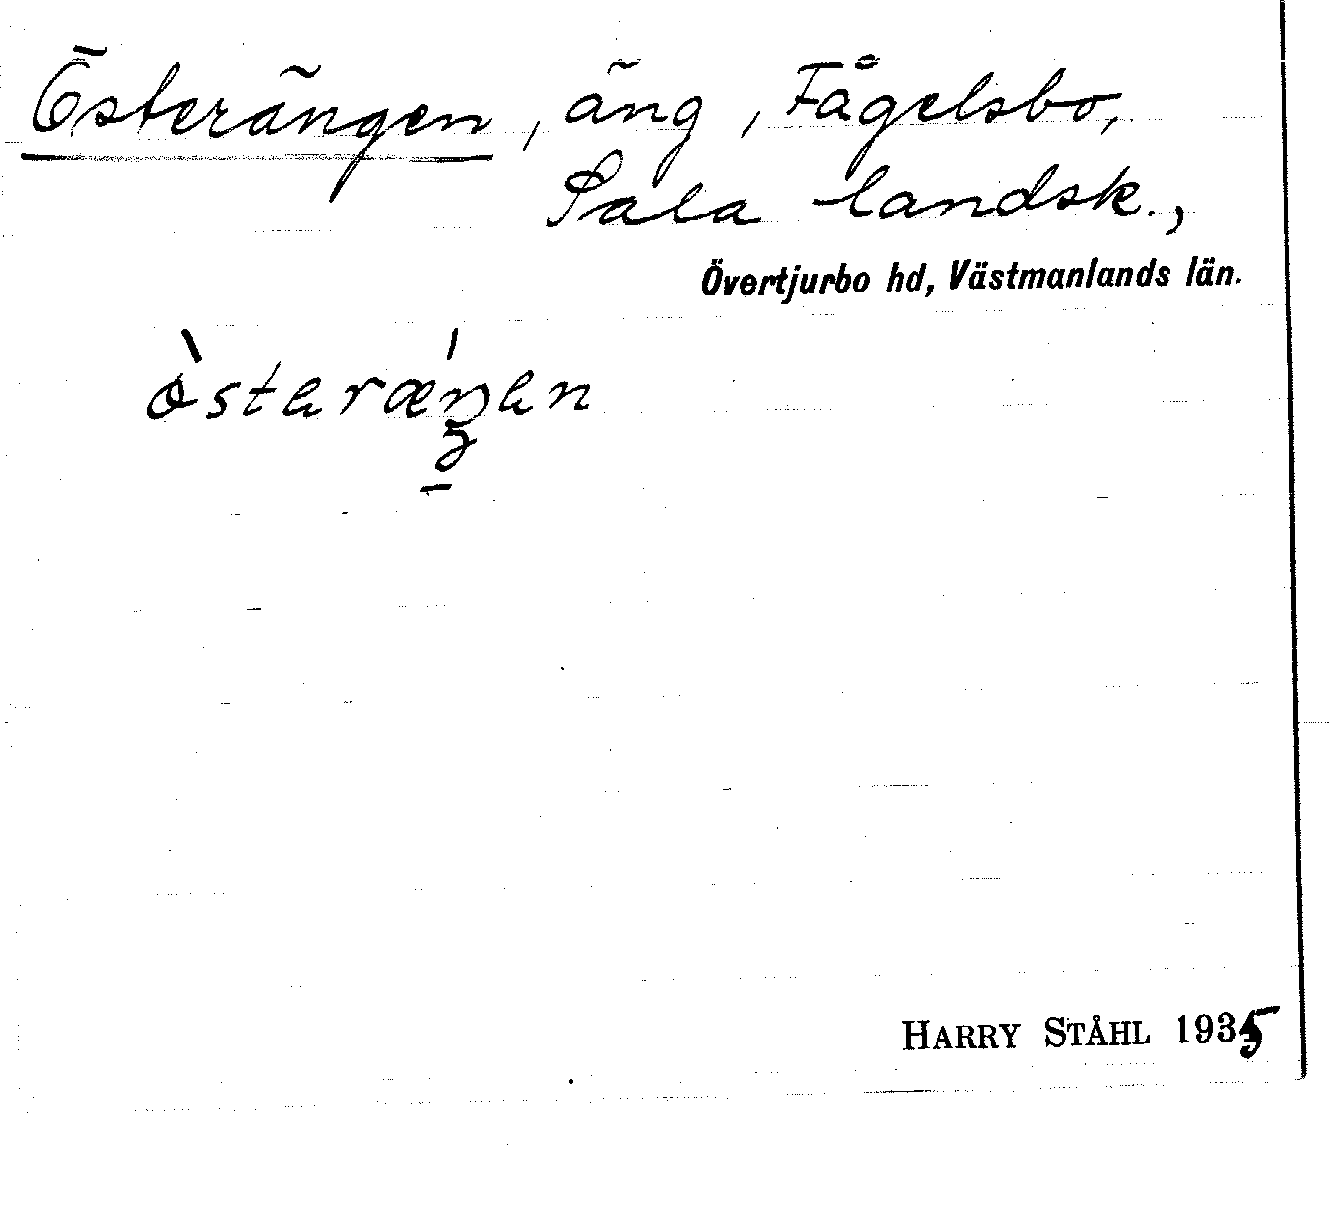 Österängen, äng, Fågelsbo,
Sala landsk.,
Övertjurbo hd, Västmanlands län.
HARRY STÅHL 1935